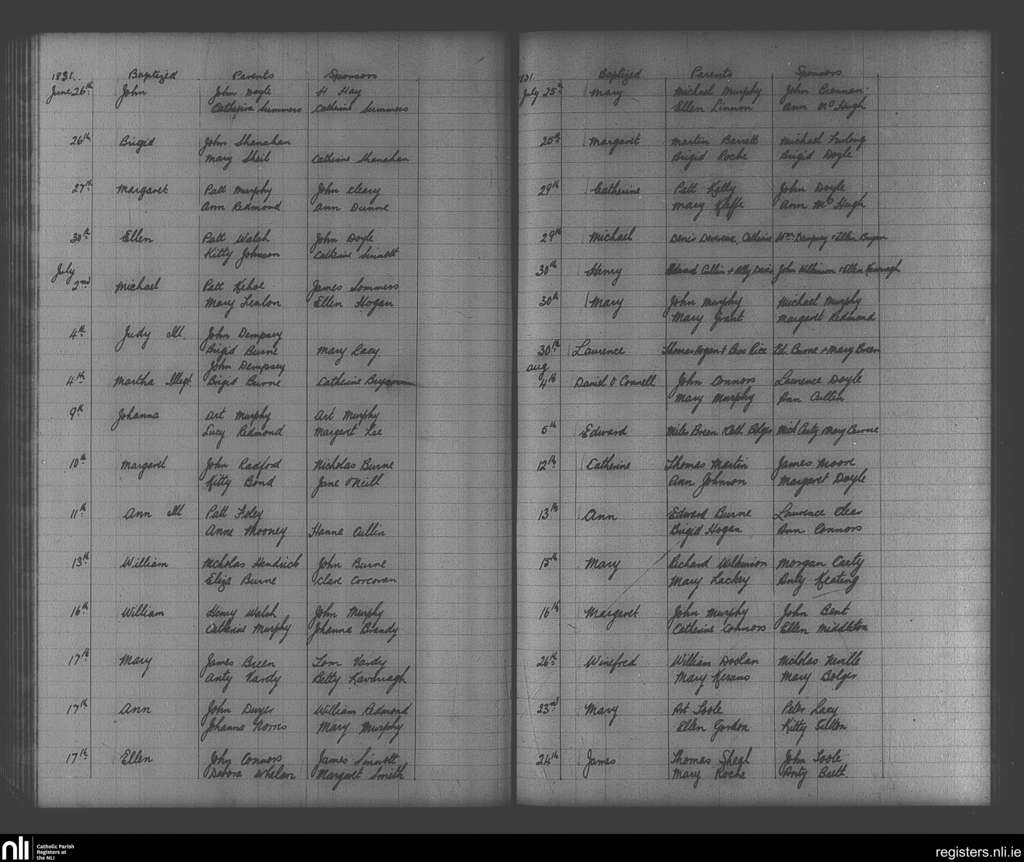 1831. Baptized Parents Sponsors
June 26th John John Doyle H Hay
Catherine Summers Catherine Summers
26th Brigid John Shanahan
Mary Sheil Catherine Shanahan
27th Margaret Patt Murphy John Cleary
Ann Redmond Ann Dunne
30th Ellen Patt Walsh John Doyle
Kitty Johnson Catherine Sinnett
July
2nd Michael Patt Kehoe James Sommers
Mary Fenlon Ellen Hogan
4th Judy Ill. John Dempsey
Brigid Burne Mary Lacy
John Dempsey
4th Martha Illegt. Brigid Burne Catherine
9th Johanna Art Murphy Art Murphy
Lucy Redmond Margaret Lee
10th Margaret John Radford Nicholas Burne
Kitty Bond Jane O'Neill
11th Ann Ill. Patt Foley
Anne Mooney Hanna Cullin
13th William Nicholas Hendrick John Burne
Eliza Burne Clare Corcoran
16th William Henry Walsh John Murphy
Catherine Murphy Johanna Brandy
17th Mary James Breen Tom Vardy
Anty Vardy Betty Kavanagh
17th Ann John Dwyer William Redmond
Johanna Norris Mary Murphy
17th Ellen John Connors James Sinnett
Debora Whelan Margaret Smith
Baptized Parents Sponsors
July 25th Mary Michael Murphy John Brennan
Ellen Linnon Ann McHugh
25th Margaret Martin Barrett Michael Furlong
Brigid Roche Brigid Doyle
29th Catherine Patt Kelly John Doyle
Mary Keffe Ann McHugh
29th Michael Denis Devereux, Catherine Wm Dempsey + Ellen
30th Henry Edward Cullin + Ally Davis John Wilkinson + Ellen Kavanagh
30th Mary John Murphy Michael Murphy
Mary Grant Margaret Redmond
30th Laurence Thomas Hogan + Bess Rice Pd. Burne + Mary Breen
Aug
4th Daniel O'Connell John Connors Laurence Doyle
Mary Murphy Ann Cullin
5th Edward Miles Breen Kath. Bolger Mich Carty Mary Burne
12th Catherine Thomas Martin James Moore
Ann Johnson Margaret Doyle
13th Ann Edward Burne Laurence Cleer
Brigid Hogan Ann Connors
15th Mary Richard Wilkinson Morgan Carty
Mary Lackey Anty Keating
16th Margaret John Murphy John Bent
Catherine Connors Ellen Middleton
26th Winefred William Doolan Nicholas Neville
Mary Mary Bolger
23rd Mary Art Toole Peter Lacy
Ellen Gordon Kitty
24th James Thomas John Toole
Mary Roche Anty Brett
nli Catholic Parish
Registers at
the NLI
registers.nli.ie